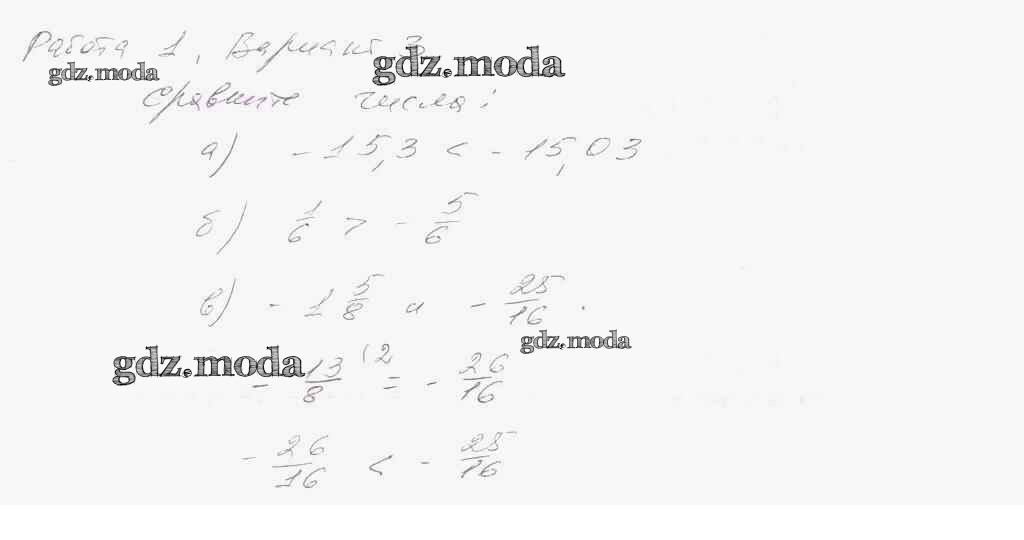 Работа 1, Вариант 3
gdz.moda
gdz.moda
Сравните числа:
а) - 15,3 < - 15,03
б) 1/6 > - 5/6
в) - 1 5/8 и - 25/16.
gdz.moda
gdz.moda
- 13/8 (2 = - 26/16
- 26/16 < - 25/16